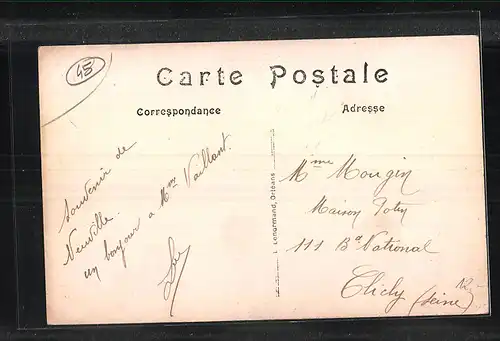 45
Carte Postale
Correspondance
Adresse
Souvenir de
Neuville.
un bonjour a Mme Vaillant.
L. Lenormand, Orléans
Mme Mougin
Maison Potin
111 Bd National
Clichy (Seine)
12-